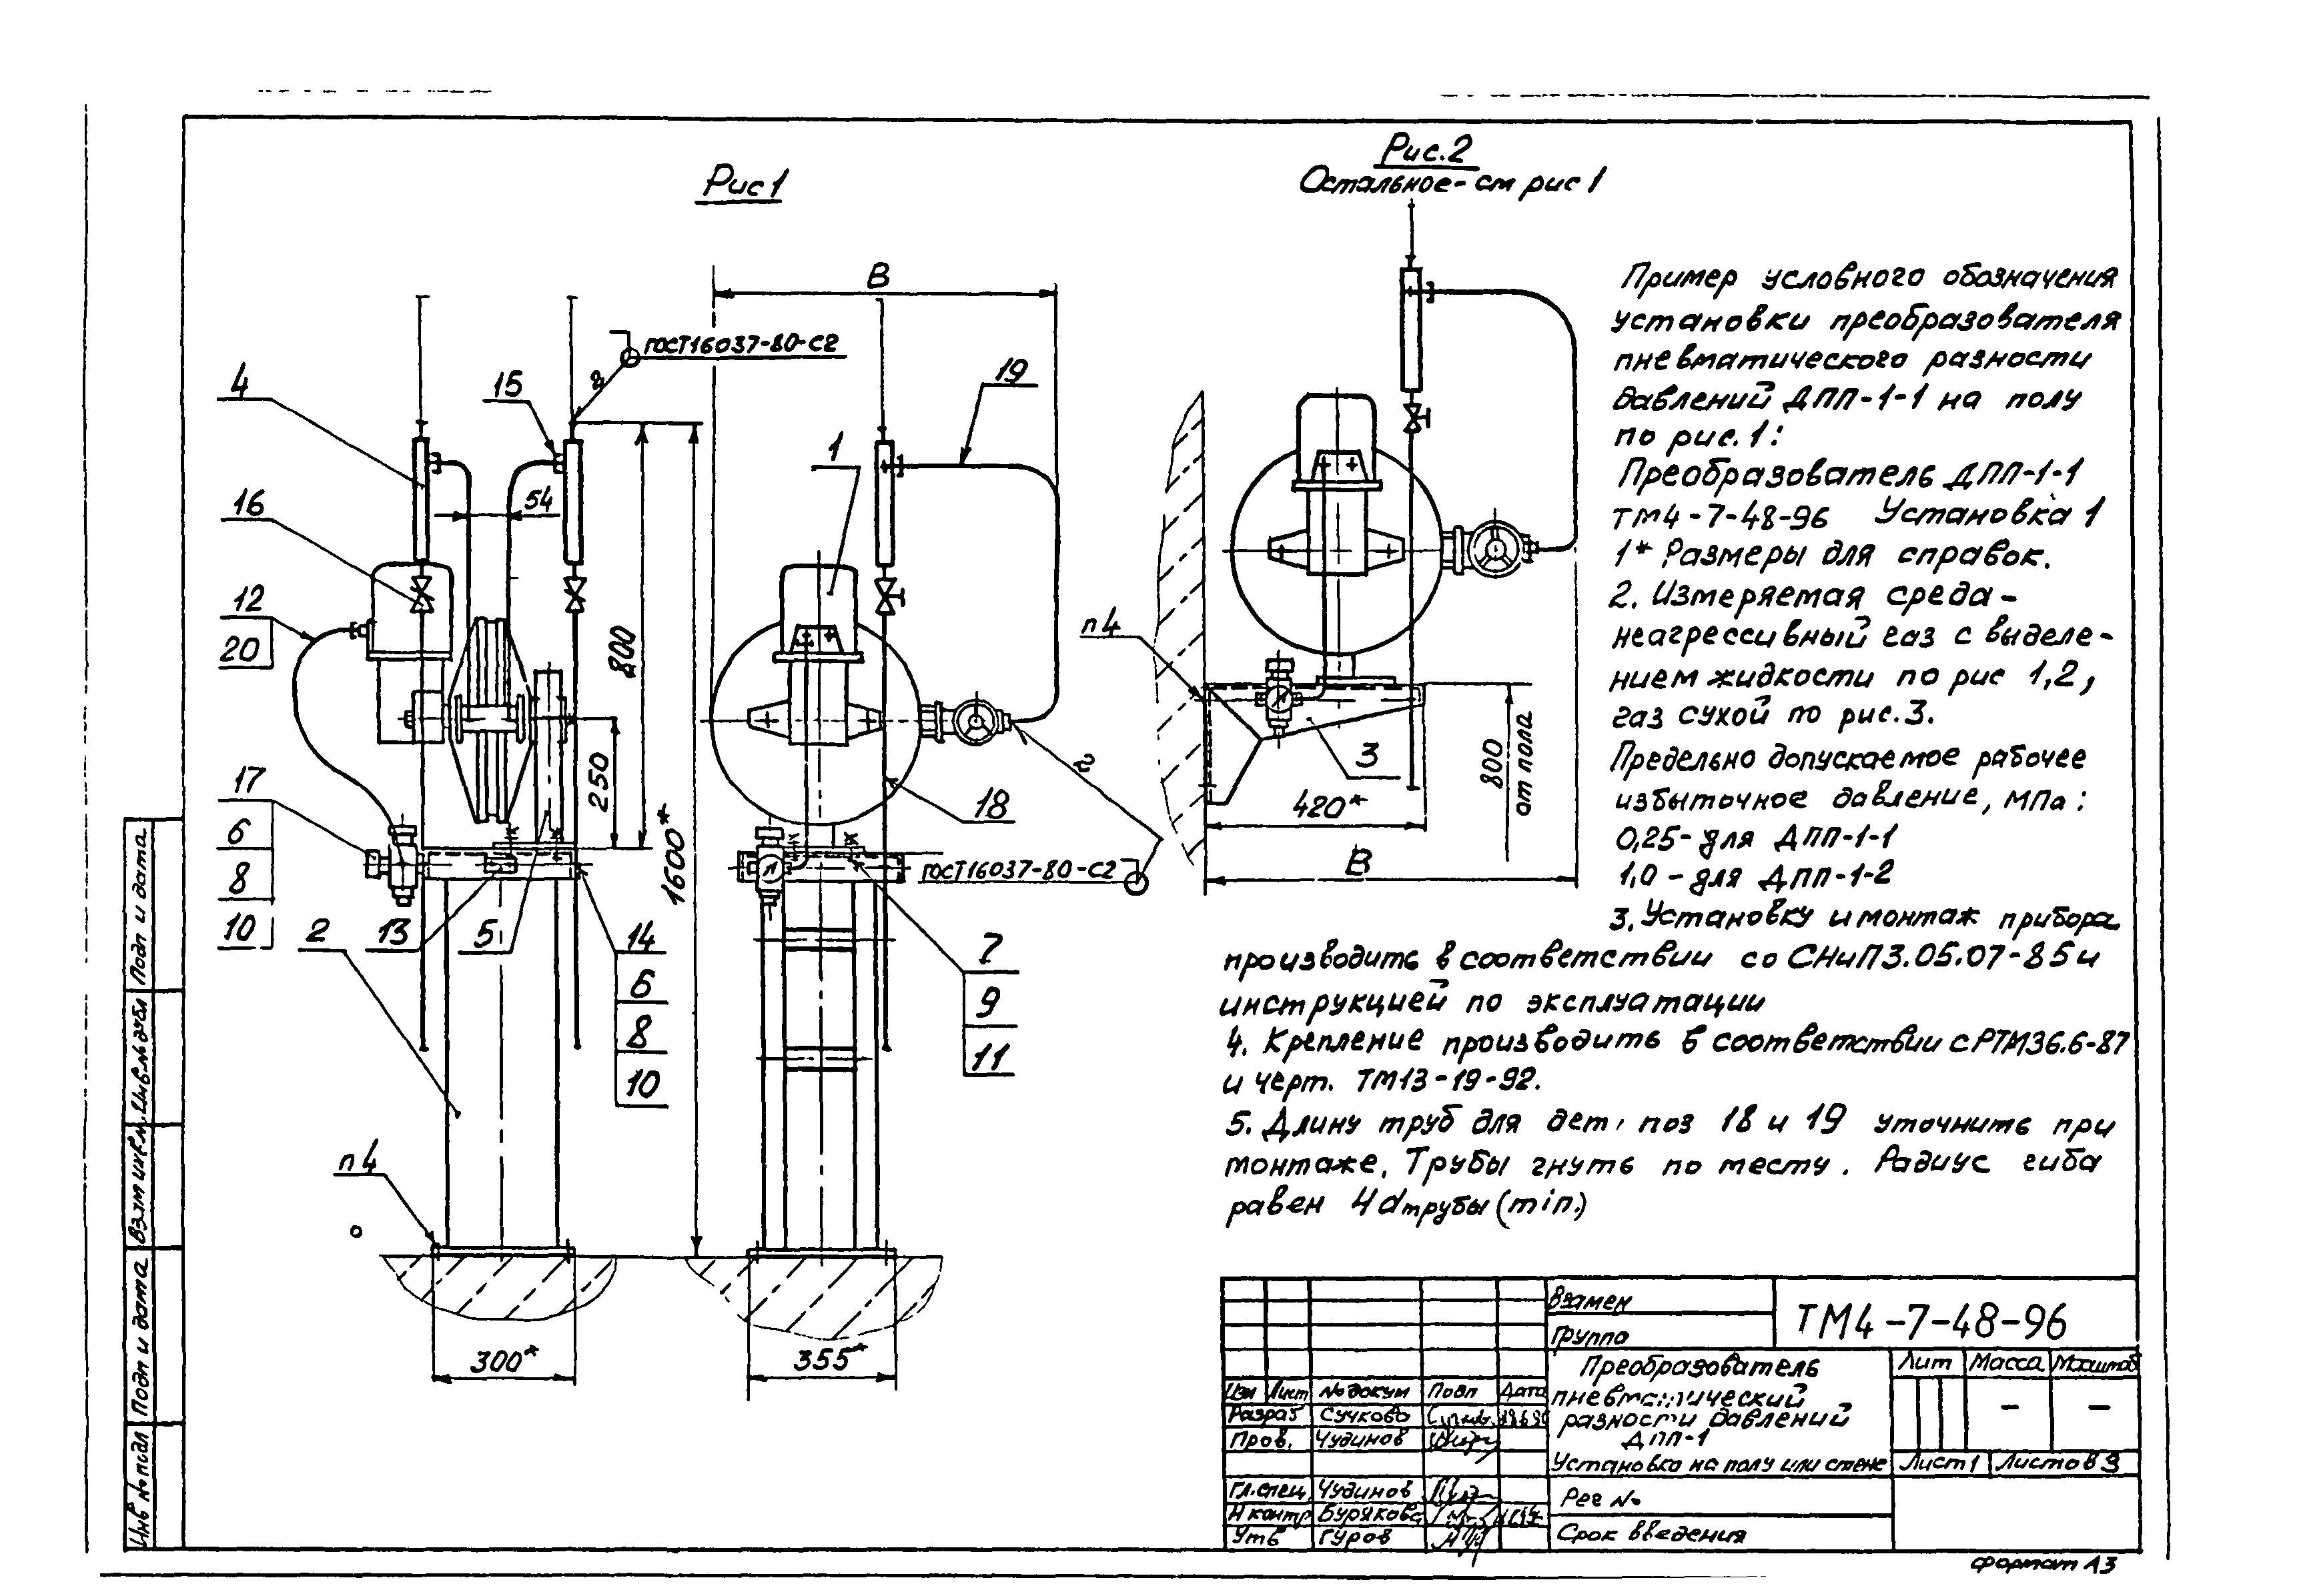 Рис 1
В
ГОСТ16037-80-С2
4
15
19
1
54
16
12
20
800
250
1600*
17
6
8
10
2
13
5
14
6
8
10
18
г
ГОСТ16037-80-С2
7
9
11
п4
300*
355*
Рис.2
Остальное-см рис 1
п4
3
420*
800
от пола
В
Пример условного обозначения
установки преобразователя
пневматического разности
давлений ДПП-1-1 на полу
по рис. 1:
Преобразователь ДПП-1-1
ТМ4-7-48-96 Установка 1
1* Размеры для справок.
2. Измеряемая среда -
неагрессивный газ с выделе-
нием жидкости по рис 1,2,
газ сухой по рис. 3.
Предельно допускаемое рабочее
избыточное давление, МПа:
0,25- для ДПП-1-1
1,0 - для ДПП-1-2
3. Установку и монтаж прибора
производить в соответствии со СНиП3.05.07-85 и
инструкцией по эксплуатации
4. Крепление производить в соответствии с РТМ36.6-87
и черт. ТМ13-19-92.
5. Длину труб для дет. поз 18 и 19 уточнить при
монтаже. Трубы гнуть по месту. Радиус гиба
равен 4dтрубы (min.)
Взамен
Группа
ТМ4-7-48-96
Преобразователь
пневматический
разности давлений
ДПП-1
Установка на полу или стене
Лит Масса Масштаб
- -
Лист 1 Листов 3
Изм Лист № докум Подп Дата
Разраб Сучкова
Пров. Чудинов
Гл.спец. Чудинов
Н контр Бурякова
Утв Гуров
Рег №
Срок введения
Формат А3
Подп и дата
Инв № дубл
Взам инв №
Подп и дата
Инв № подл